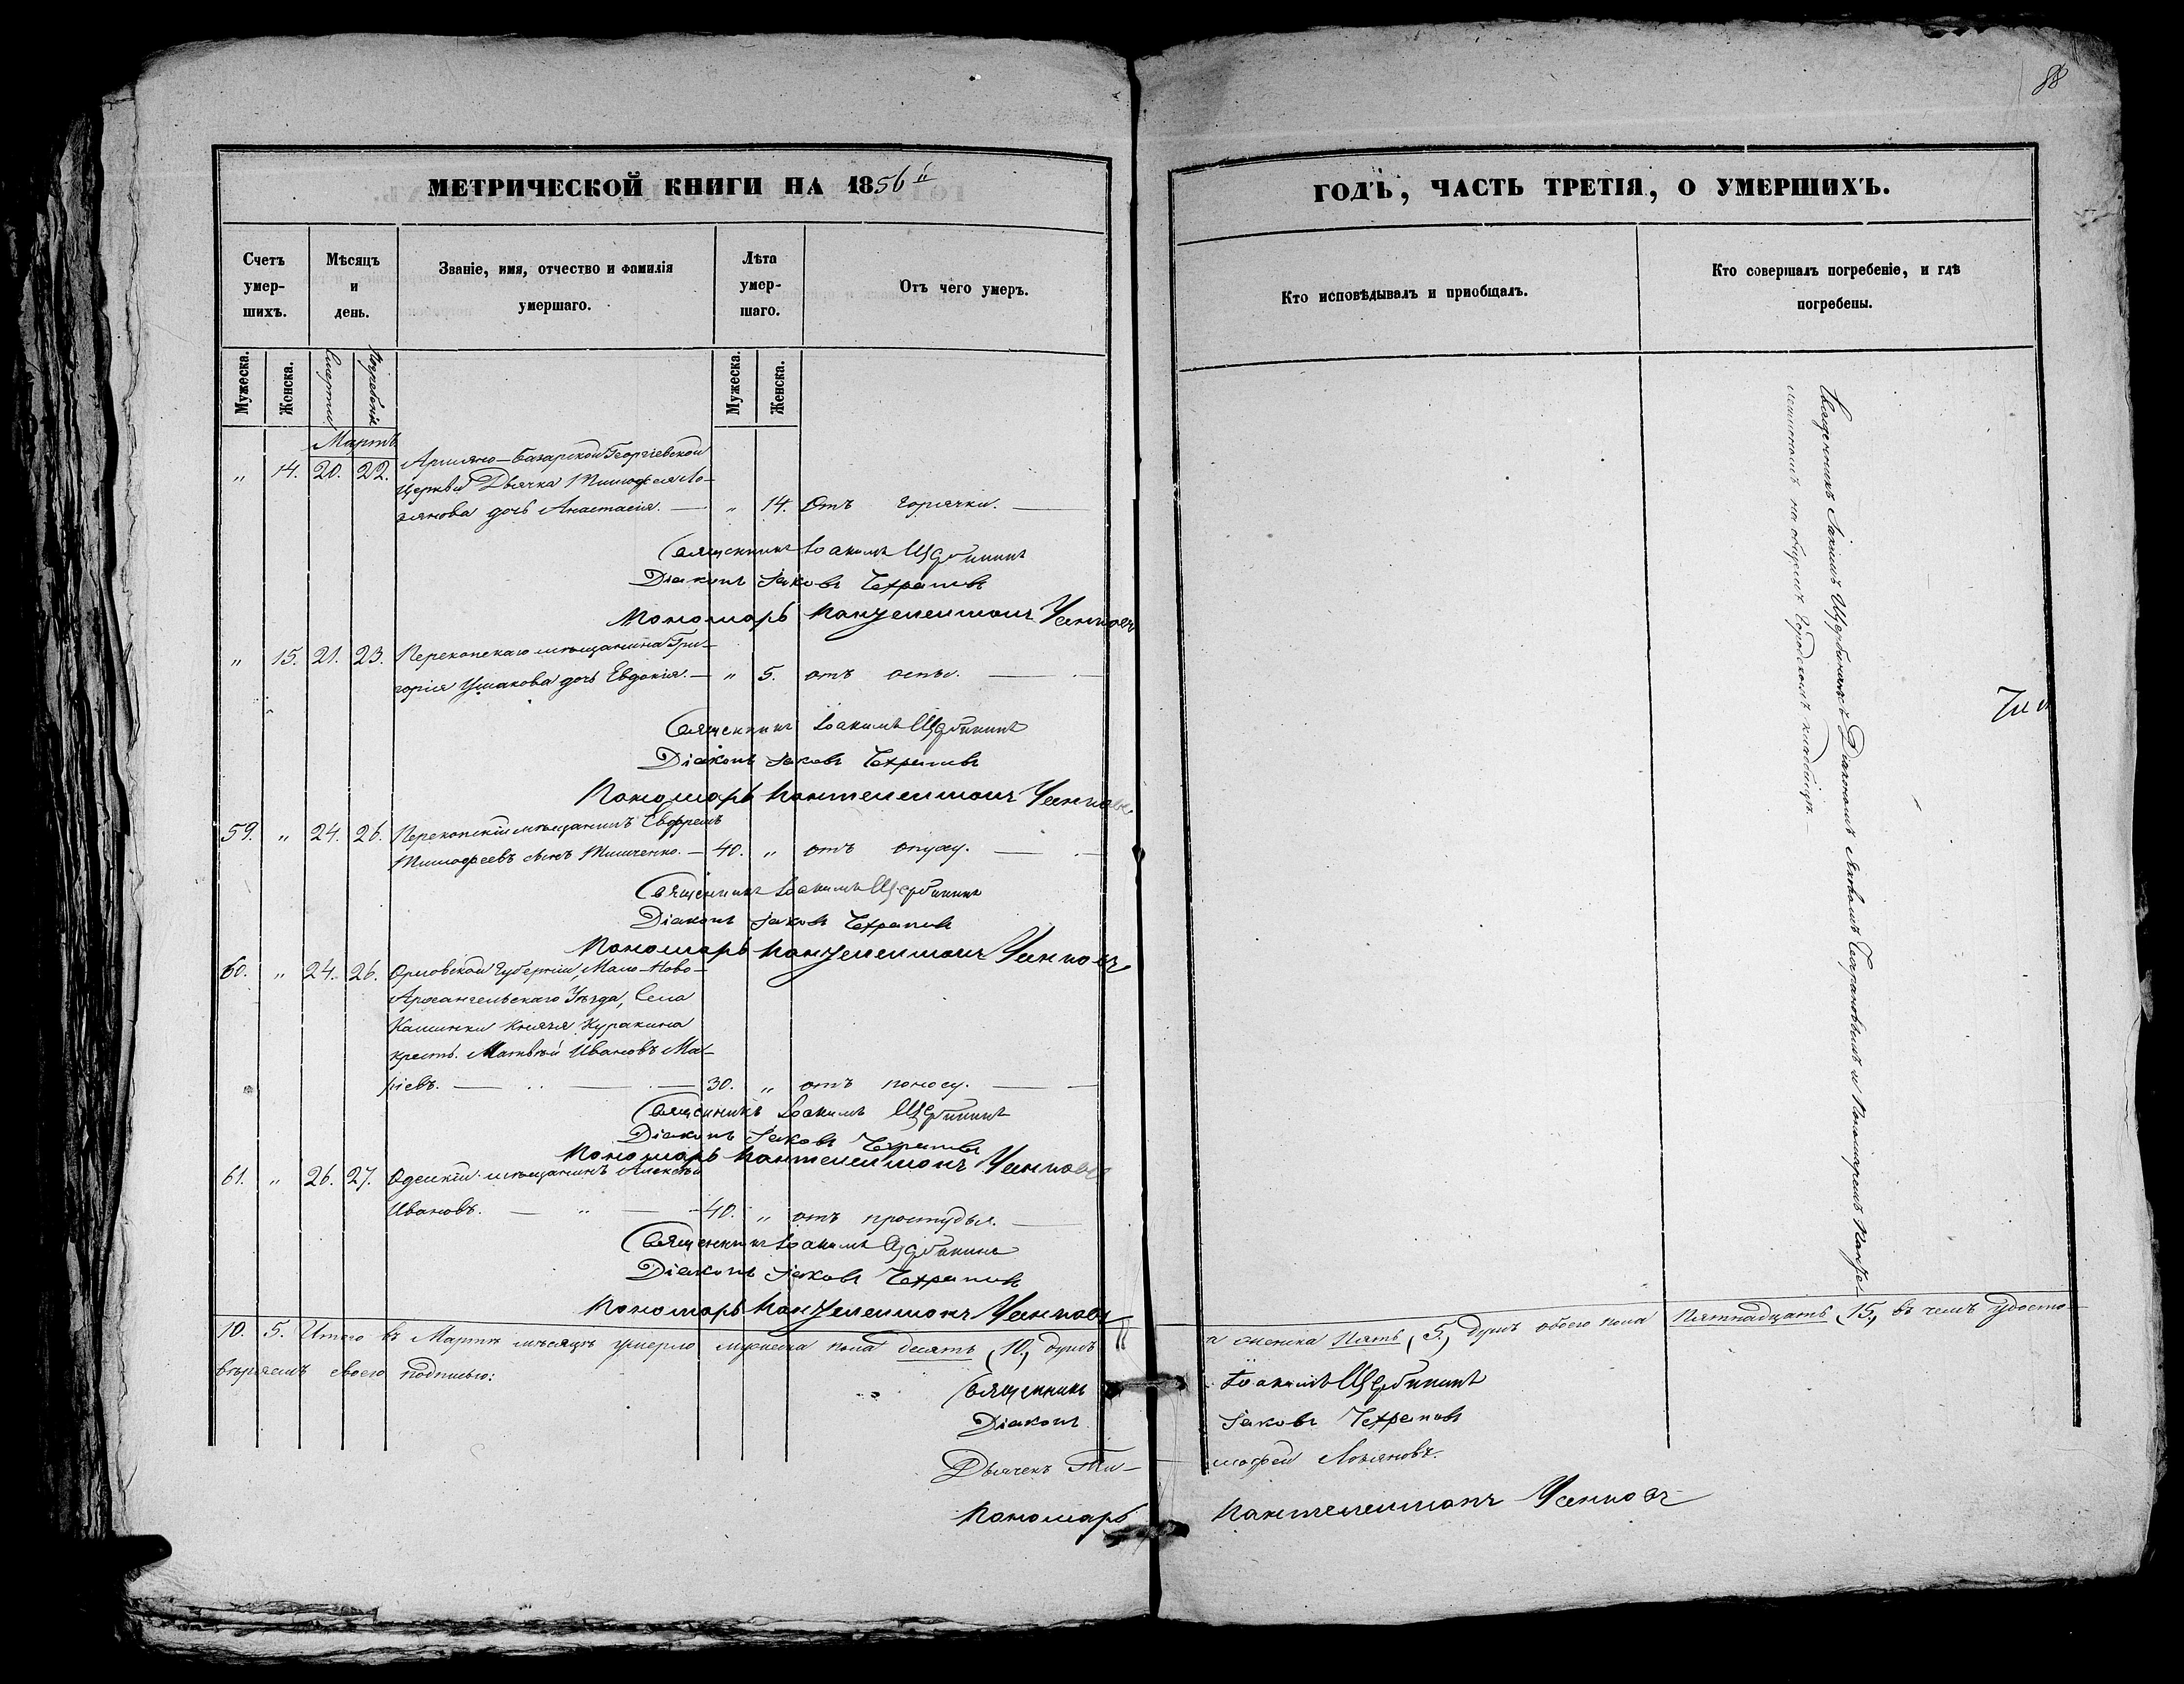 88
МЕТРИЧЕСКОЙ КНИГИ НА 1856й
ГОДЪ, ЧАСТЬ ТРЕТІЯ, О УМЕРШИХЪ.
Счетъ умер-шихъ.
Мѣсяцъ и день.
Званіе, имя, отчество и фамилія умершаго.
Лѣта умер-шаго.
Отъ чего умеръ.
Кто исповѣдывалъ и пріобщалъ.
Кто совершалъ погребеніе, и гдѣ погребены.
Мужеска.
Женска.
Смерти
Погребенія
Мужеска.
Женска.
Мартъ
„ 14. 20. 22. Армяно-Базарской Георгіевской
Церкви Дьячка Тимофея Ло-
зянова дочь Анастасія. — „ 14. Отъ горячки. —
Священникъ Іоакимъ Щербининъ
Діаконъ Іаковъ
Пономарь Пантелеимонъ
„ 15. 21. 23. Перекопскаго мѣщанина Гри-
горія Ушакова дочь Евдокія. — „ 5. отъ оспы. —
Священникъ Іоакимъ Щербининъ
Діаконъ Іаковъ
Пономарь Пантелеимонъ
59. „ 24. 26. Перекопскій мѣщанинъ Евфремъ
Тимофеевъ сынъ Тимченко. — 40. „ отъ опуху. —
Священникъ Іоакимъ Щербининъ
Діаконъ Іаковъ
Пономарь Пантелеимонъ
60. „ 24. 26. Орловской Губерніи, Мало-Ново-
Архангельскаго Уѣзда, Села
Каменки Князя Куракина
крест. Матвѣй Ивановъ Ма-
ріевъ. — 30. „ отъ поносу. —
Священникъ Іоакимъ Щербининъ
Діаконъ Іаковъ
Пономарь Пантелеимонъ
61. „ 26. 27. Одескій мѣщанинъ Алексѣй
Ивановъ. — „ — 40. „ отъ простуды. —
Священникъ Іоакимъ Щербининъ
Діаконъ Іаковъ
Пономарь Пантелеимонъ
Священникъ Іакимъ Щербининъ съ Діакономъ Яковомъ и Пономаремъ
на общемъ городскомъ кладбищѣ. —
10. 5. Итого въ Мартѣ мѣсяцѣ умерло мужеска пола десять (10.) душъ
и женска пять (5.) душъ обоего пола пятнадцать (15.) въ чемъ удосто-
вѣряемъ своею подписью:
Священникъ Іоакимъ Щербининъ
Діаконъ Іаковъ
Дьячекъ Ти-мофей Лозяновъ.
Пономарь Пантелеимонъ